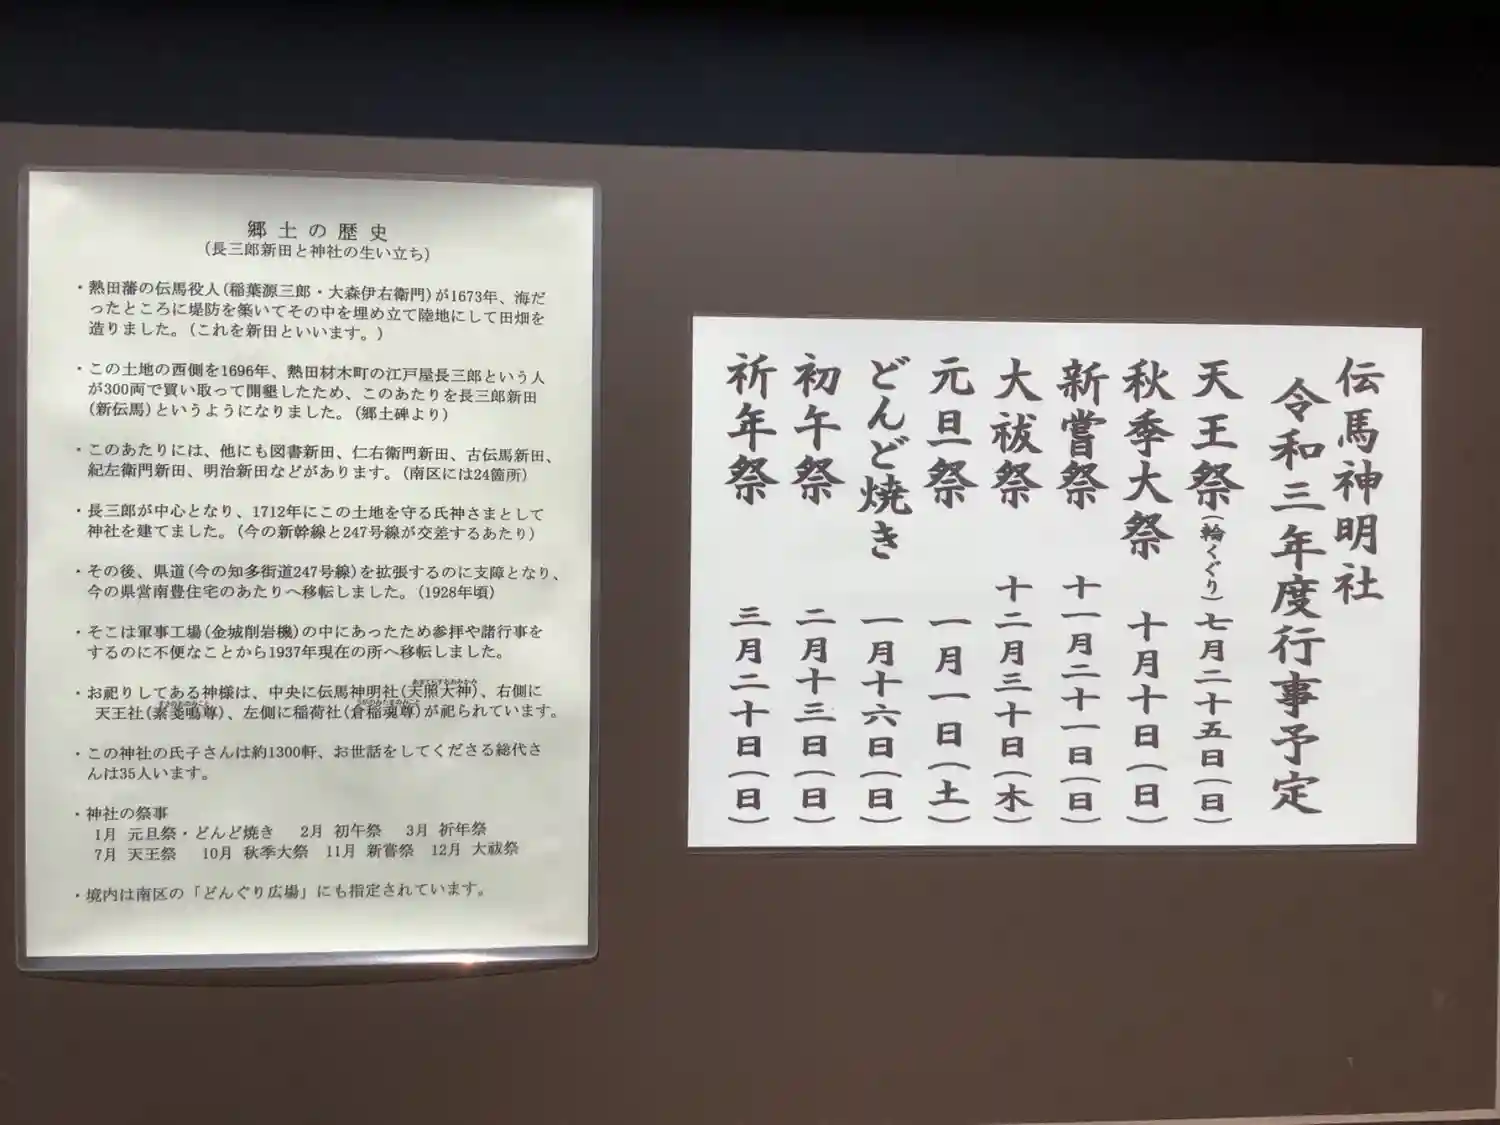 郷土の歴史
(長三郎新田と神社の生い立ち)
・熱田藩の伝馬役人(稲葉源三郎・大森伊右衛門)が1673年、海だ
ったところに堤防を築いてその中を埋め立て陸地にして田畑を
造りました。(これを新田といいます。)
・この土地の西側を1696年、熱田材木町の江戸屋長三郎という人
が300両で買い取って開墾したため、このあたりを長三郎新田
(新伝馬)というようになりました。(郷土碑より)
・このあたりには、他にも図書新田、仁右衛門新田、古伝馬新田、
紀左衛門新田、明治新田などがあります。(南区には24箇所)
・長三郎が中心となり、1712年にこの土地を守る氏神さまとして
神社を建てました。(今の新幹線と247号線が交差するあたり)
・その後、県道(今の知多街道247号線)を拡張するのに支障となり、
今の県営南豊住宅のあたりへ移転しました。(1928年頃)
・そこは軍事工場(金城削岩機)の中にあったため参拝や諸行事を
するのに不便なことから1937年現在の所へ移転しました。
・お祀りしてある神様は、中央に伝馬神明社(天照大神)、右側に
天王社(素戔嗚尊)、左側に稲荷社(倉稲魂尊)が祀られています。
・この神社の氏子さんは約1300軒、お世話をしてくださる総代さ
んは35人います。
・神社の祭事
1月 元旦祭・どんど焼き 2月 初午祭 3月 祈年祭
7月 天王祭 10月 秋季大祭 11月 新嘗祭 12月 大祓祭
・境内は南区の「どんぐり広場」にも指定されています。
伝馬神明社
令和三年度行事予定
天王祭(輪くぐり) 七月二十五日(日)
秋季大祭 十月十日(日)
新嘗祭 十一月二十一日(日)
大祓祭 十二月三十日(木)
元旦祭 一月一日(土)
どんど焼き 一月十六日(日)
初午祭 二月十三日(日)
祈年祭 三月二十日(日)